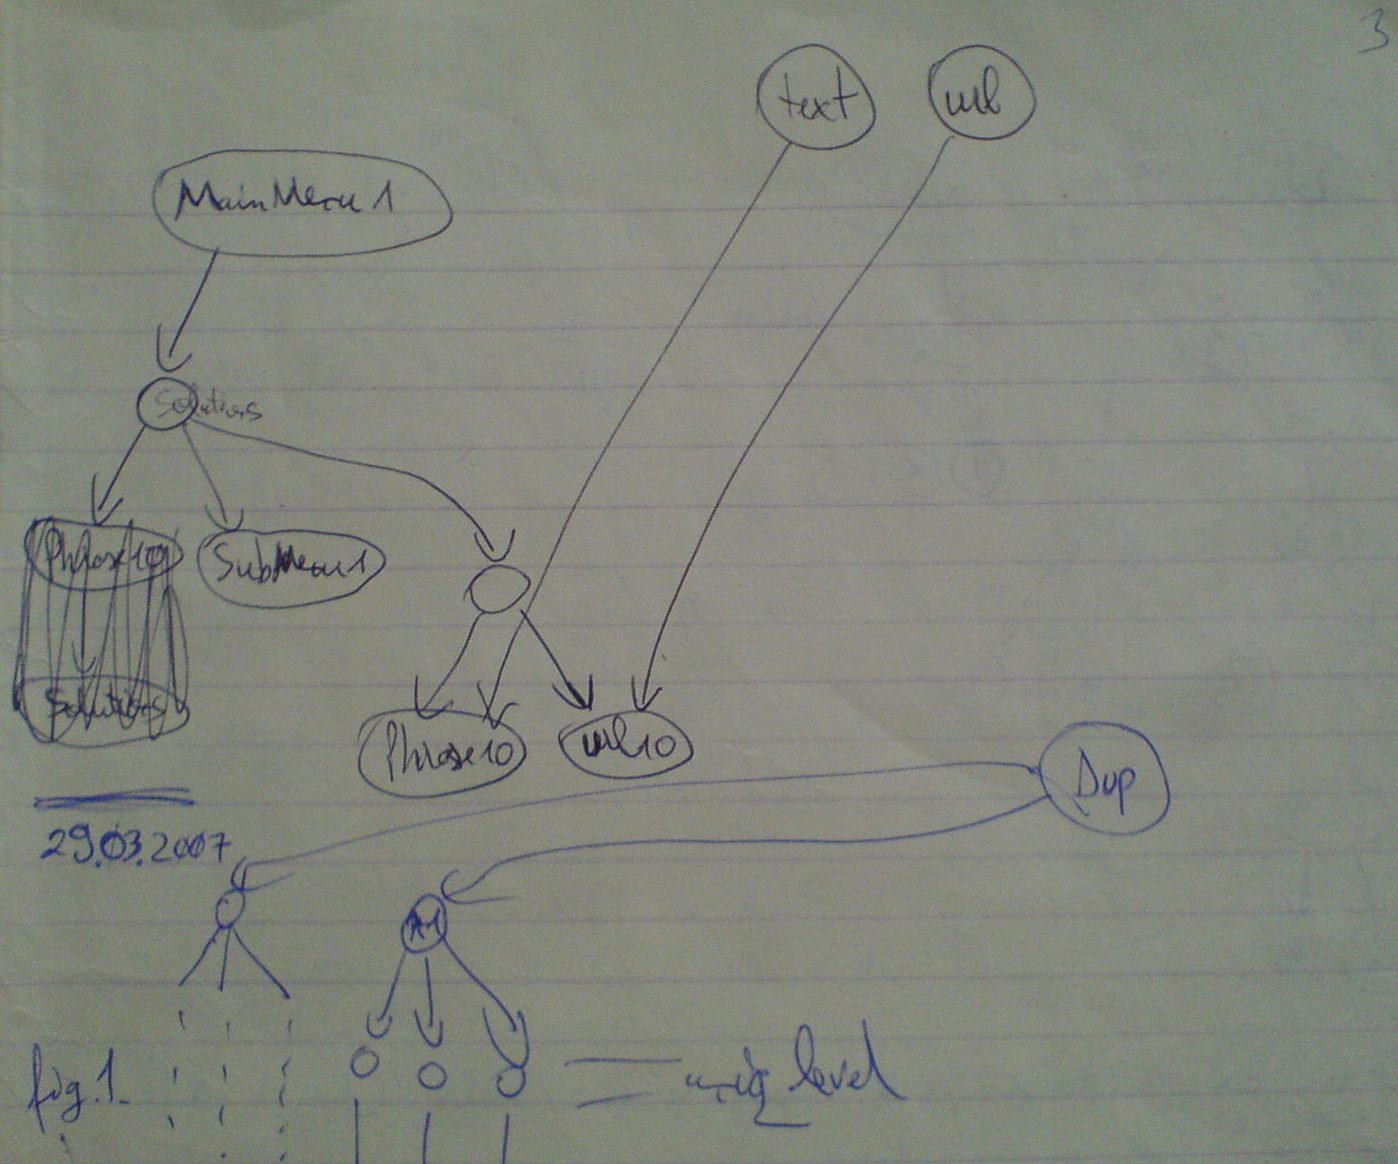 3
text
url
MainMenu1
Solutions
Phrase10
SubMenu1
Solutions
Phrase10
url10
Dup
29.03.2007
A1
fig.1.
uniq_level